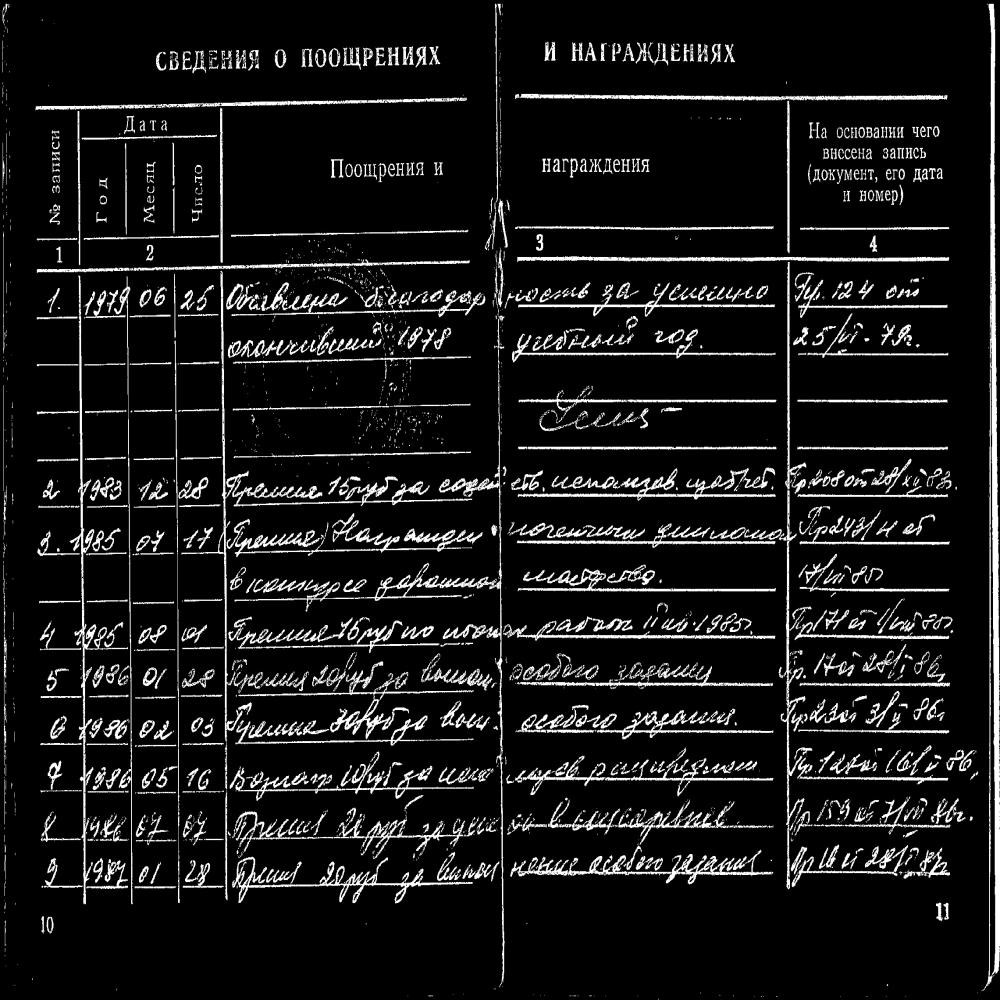 СВЕДЕНИЯ О ПООЩРЕНИЯХ И НАГРАЖДЕНИЯХ
№ записи
Дата
Год
Месяц
Число
Поощрения и награждения
На основании чего
внесена запись
(документ, его дата
и номер)
1 2 3 4
1. 1979 06 25 Объявлена благодарность за успешно Пр. 124 от
окончивший 1978 учебный год. 25/VI-79г.
2 1983 12 28 Премия 15руб за использов. Пр208от28/XII83г.
3. 1985 07 17 (Премия) Награжден почетным дипломом Пр243/н от
в конкурсе мастерства. 17/VII85г
4 1985 08 01 Премия 15руб по итогам работы II кв-1985г. Пр171от1/VIII85г.
5 1986 01 28 Премия 20руб за выполн. особого задания Пр.17от28/I86г
6 1986 02 03 Премия за вып. особого задания. Пр23от3/II86г
7 1986 05 16 за
8 1986 07 07 Премия 20руб за в соцсоревнов Пр159от7/VII86г.
9 1987 01 28 Премия 20руб за выполнение особого задания Пр16от28/I87г
10
11